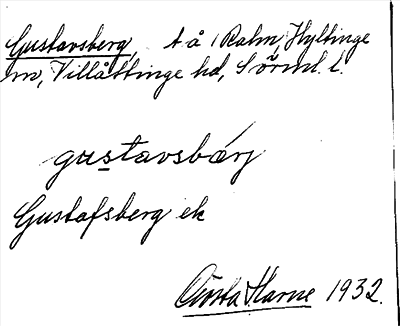 Gustavsberg, t å Ralm, Hyltinge
sn, Villåttinge hd, Sörml. l.
gustavsbärj
Gustafsberg ek
Gösta Harne 1932.